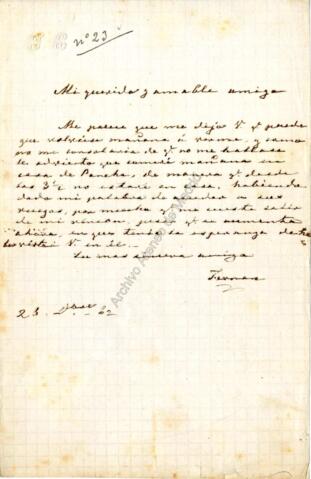 nº 23
Mi querida y amable amiga
Me parece que me dijo V. qe puede
que volviese mañana á verme, y como
no me consolaria de qe no me hallase
le advierto que comeré mañana en
casa de Pancha, de manera qe desde
las 3½ no estaré en casa. habiendo
dado mi palabra de ceder a sus
ruegos, por mucho qe me cuesta salir
de mi rincon, pues qe se aumenta
ahora, en que tenia la esperanza de
ver V. en él.
Su mas sincera amiga
Fernan
23 Dbre 62
Archivo Ateneo de Madrid